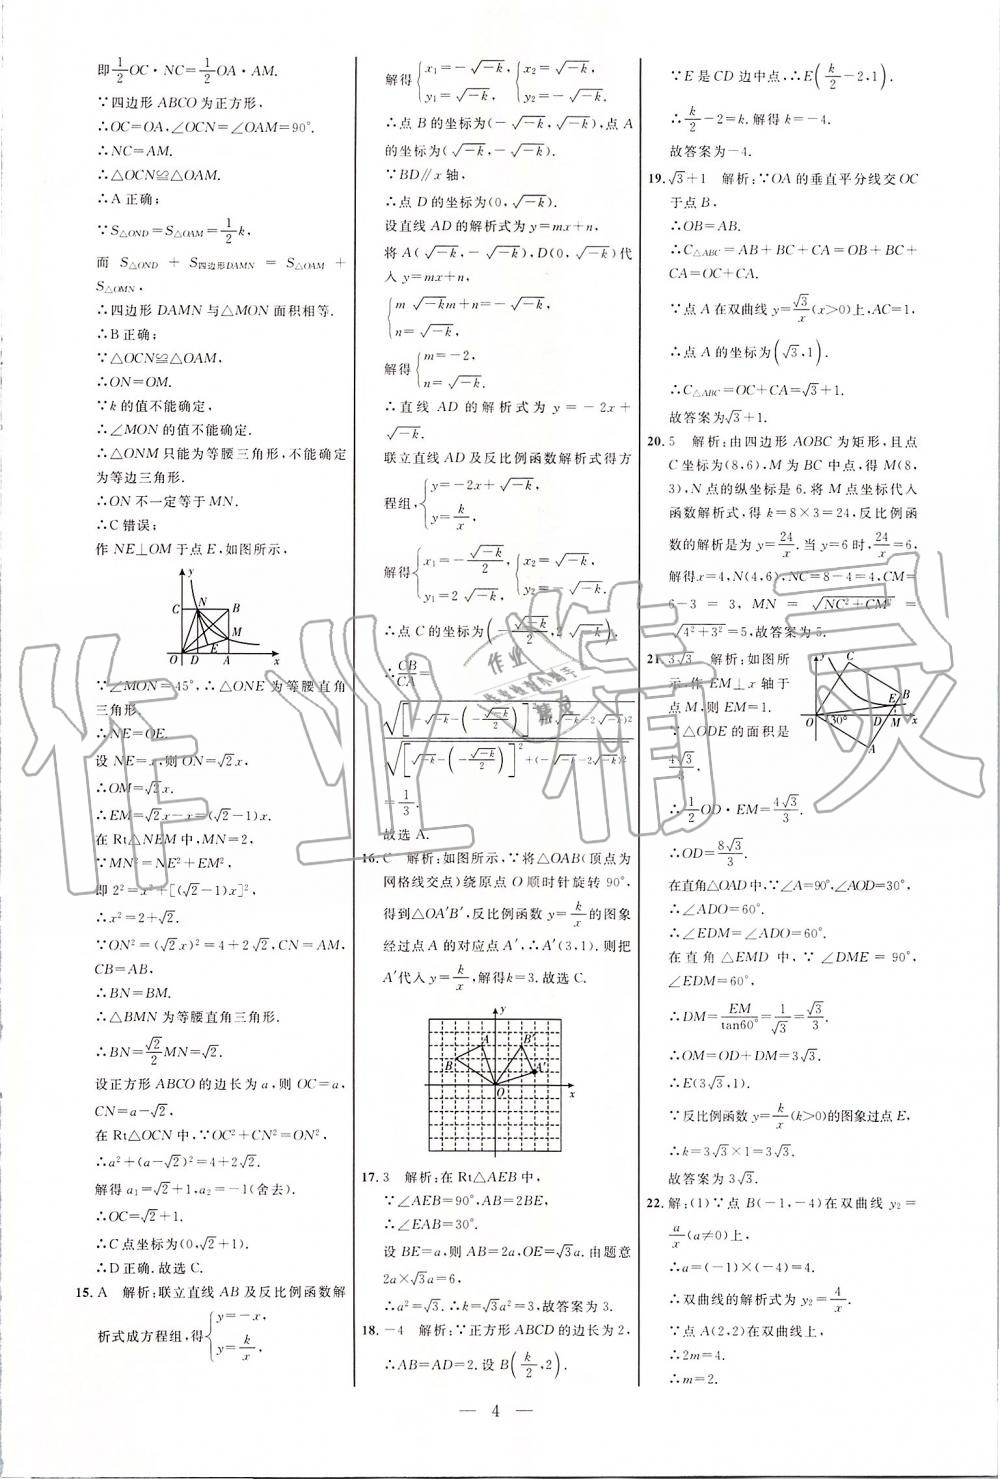 即1/2OC·NC=1/2OA·AM.
∵四边形ABCO为正方形,
∴OC=OA,∠OCN=∠OAM=90°.
∴NC=AM.
∴△OCN≌△OAM.
∴A正确;
∵S△OND=S△OAM=1/2k,
而 S△OND + S四边形DAMN = S△OAM +
S△OMN.
∴四边形DAMN与△MON面积相等.
∴B正确;
∵△OCN≌△OAM,
∴ON=OM.
∵k的值不能确定,
∴∠MON的值不能确定.
∴△ONM只能为等腰三角形,不能确定
为等边三角形.
∴ON不一定等于MN.
∴C错误;
作NE⊥OM于点E,如图所示,
y
C N B
M
E
O D A x
∵∠MON=45°,∴△ONE为等腰直角
三角形.
∴NE=OE.
设NE=x,则ON=√2x.
∴OM=√2x.
∴EM=√2x-x=(√2-1)x.
在Rt△NEM中,MN=2,
∵MN²=NE²+EM²,
即2²=x²+[(√2-1)x]².
∴x²=2+√2.
∵ON²=(√2x)²=4+2√2,CN=AM,
CB=AB,
∴BN=BM.
∴△BMN为等腰直角三角形.
∴BN=√2/2MN=√2.
设正方形ABCO的边长为a,则OC=a,
CN=a-√2.
在Rt△OCN中,∵OC²+CN²=ON²,
∴a²+(a-√2)²=4+2√2.
解得a₁=√2+1,a₂=-1(舍去).
∴OC=√2+1.
∴C点坐标为(0,√2+1).
∴D正确.故选C.
15.A 解析:联立直线AB及反比例函数解
析式成方程组,得{y=-x, y=k/x,
解得{x₁=-√-k, y₁=√-k, {x₂=√-k, y₂=-√-k.
∴点B的坐标为(-√-k,√-k),点A
的坐标为(√-k,-√-k).
∵BD∥x轴,
∴点D的坐标为(0,√-k).
设直线AD的解析式为y=mx+n,
将A(√-k,-√-k),D(0,√-k)代
入y=mx+n,
{m√-km+n=-√-k, n=√-k.
解得{m=-2, n=√-k.
∴直线AD的解析式为y=-2x+
√-k.
联立直线AD及反比例函数解析式得方
程组,{y=-2x+√-k, y=k/x,
解得{x₁=-√-k/2, y₁=2√-k, {x₂=√-k, y₂=-√-k.
∴点C的坐标为(-√-k/2,2√-k).
∴CB/CA=
=1/3.
故选A.
16.C 解析:如图所示,∵将△OAB(顶点为
网格线交点)绕原点O顺时针旋转90°,
得到△OA′B′,反比例函数y=k/x的图象
经过点A的对应点A′,∴A′(3,1).则把
A′代入y=k/x,解得k=3.故选C.
y
A B′
B A′
O x
17.3 解析:在Rt△AEB中,
∵∠AEB=90°,AB=2BE,
∴∠EAB=30°.
设BE=a,则AB=2a,OE=√3a.由题意
2a×√3a=6,
∴a²=√3.∴k=√3a²=3,故答案为3.
18.-4 解析:∵正方形ABCD的边长为2,
∴AB=AD=2.设B(k/2,2).
∵E是CD边中点,∴E(k/2-2,1).
∴k/2-2=k.解得k=-4.
故答案为-4.
19.√3+1 解析:∵OA的垂直平分线交OC
于点B,
∴OB=AB.
∴C△ABC=AB+BC+CA=OB+BC+
CA=OC+CA.
∵点A在双曲线y=√3/x(x>0)上,AC=1,
∴点A的坐标为(√3,1).
∴C△ABC=OC+CA=√3+1.
故答案为√3+1.
20.5 解析:由四边形AOBC为矩形,且点
C坐标为(8,6),M为BC中点,得M(8,
3),N点的纵坐标是6.将M点坐标代入
函数解析式,得k=8×3=24,反比例函
数的解析是为y=24/x.当y=6时,24/x=6,
解得x=4,N(4,6),NC=8-4=4,CM=
6-3=3,MN=√NC²+CM²=
√4²+3²=5,故答案为5.
21.3√3 解析:如图所
示,作EM⊥x轴于
点M,则EM=1.
∵△ODE的面积是
4√3/3,
y
C
B
E
O 30° D M x
A
∴1/2OD·EM=4√3/3.
∴OD=8√3/3.
在直角△OAD中,∵∠A=90°,∠AOD=30°,
∴∠ADO=60°.
∴∠EDM=∠ADO=60°.
在直角△EMD中,∵∠DME=90°,
∠EDM=60°,
∴DM=EM/tan60°=1/√3=√3/3.
∴OM=OD+DM=3√3.
∴E(3√3,1).
∵反比例函数y=k/x(k>0)的图象过点E,
∴k=3√3×1=3√3.
故答案为3√3.
22.解:(1)∵点B(-1,-4)在双曲线y₂=
a/x(a≠0)上,
∴a=(-1)×(-4)=4.
∴双曲线的解析式为y₂=4/x.
∵点A(2,2)在双曲线上,
∴2m=4.
∴m=2.
— 4 —
作业精灵